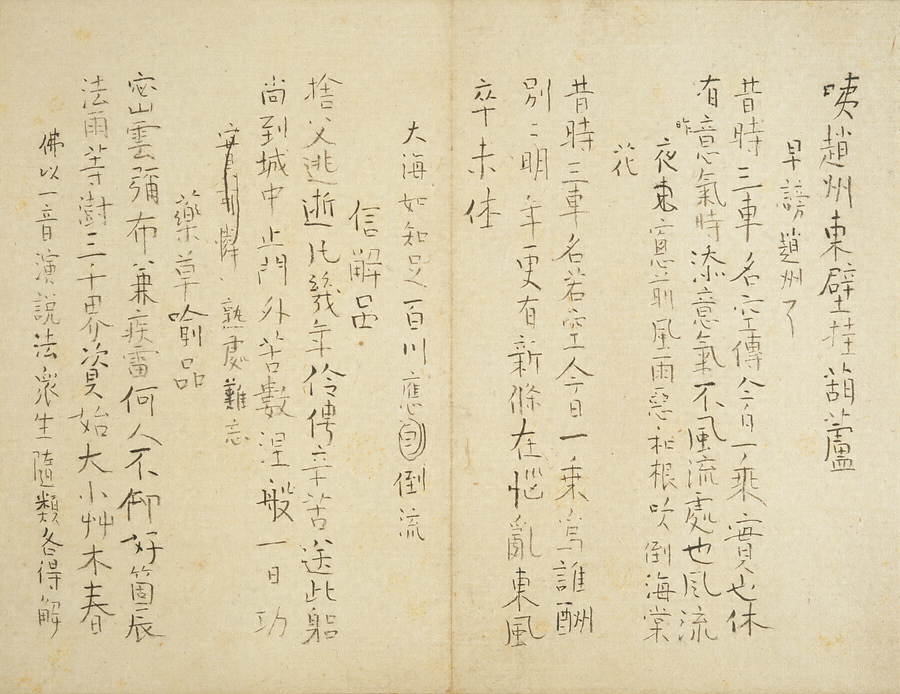 咦趙州東壁挂葫蘆
早謗趙州了
昔時三車名空傳今日一乘實也休
有意氣時添意氣不風流處也風流
昨夜窓前風雨惡和根吹倒海棠
花
昔時三車名若空今日一乘為誰酬
別々明年更有新條在惱亂東風
卒未休
大海如知足百川應倒流
信解品
捨父逃逝凡幾年伶俜辛苦送此躬
尚到城中止門外苦數涅般一日功
熟處難忘
藥草喻品
密雲彌布兼疾雷何人不仰好箇辰
法雨等澍三千界資始大小艸木春
佛以一音演說法眾生隨類各得解